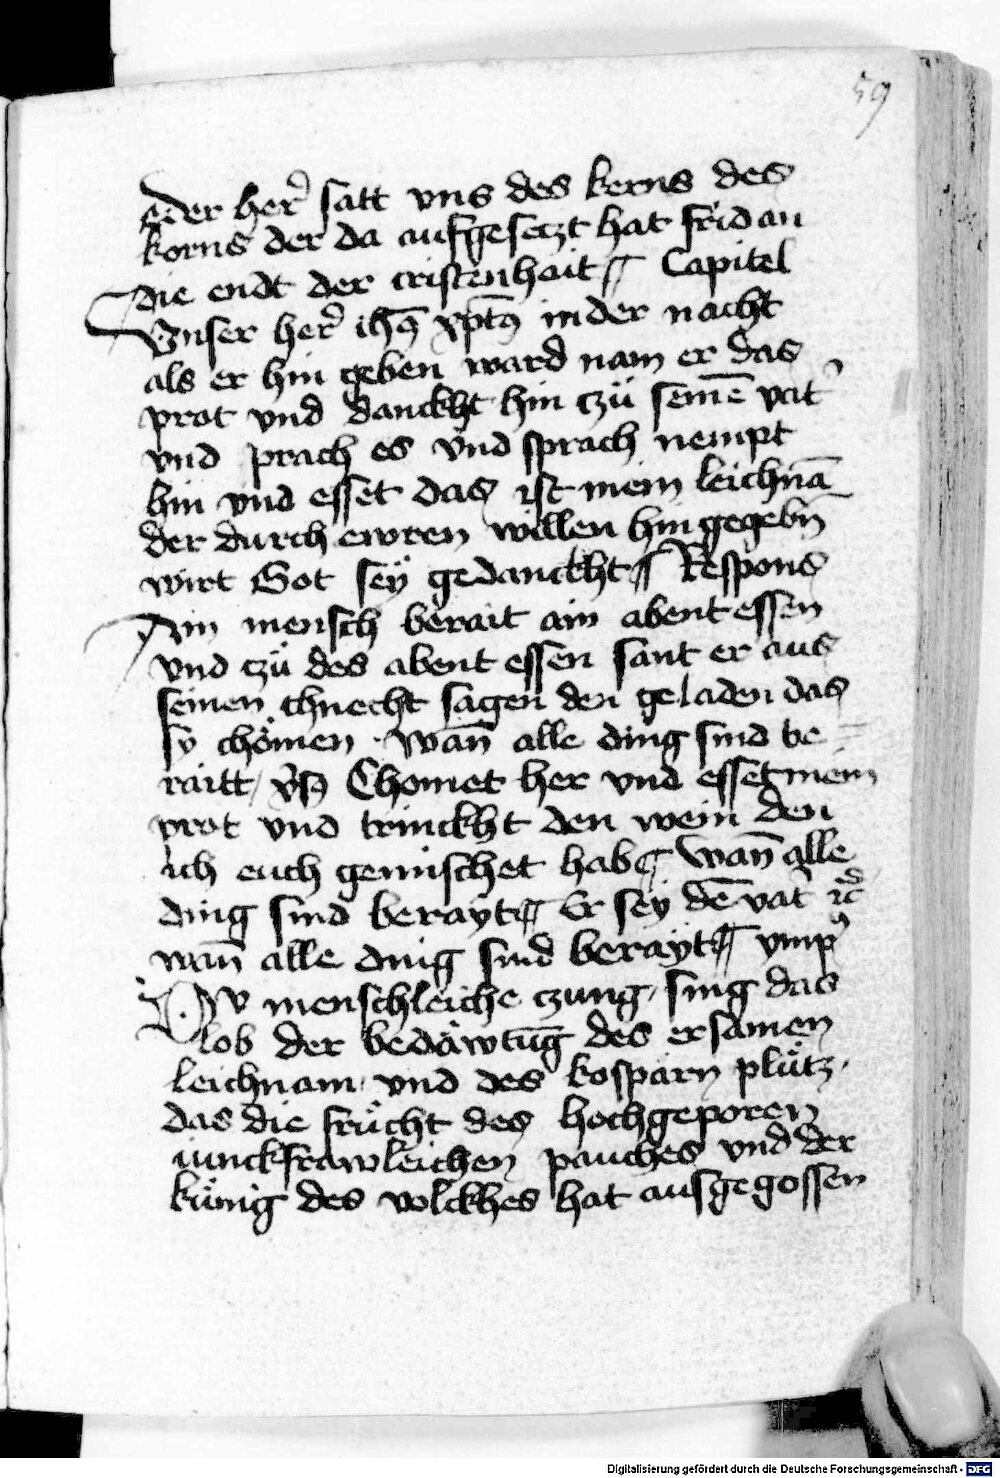 59
Der her̄ satt vns des kerns des
korns der da aufgesetzt hat frid an
die endt der cristenhait ¶ Capitel
Vnser her̄ ih̄s xp̄tꝰ in der nacht
als er hin geben ward nam er das
prot vnd danckht hin czü seinē vat̄
vnd prach es vnd sprach nempt
hin vnd esset das ist mein leichnā
der durch ewren willen hin gegebn̄
wirt Got seÿ gedanckht ¶ Respons
Ain mensch berait ain abent essen
vnd czü des abent essen sant er aus
seinen chnecht sagen den geladen das
sy chömen · wan̄ alle ding sind be
raitt / v̄s Chomet her vnd esset mein
prot vnd trinckht den wein den
ich euch gemischet hab ¶ wan̄ alle
ding sind berayt ¶ Er sey dē vat̄ ꝛc
wan̄ alle ding sind berayt ¶ ymp̄
Dw menschleiche czung / sing das
lob der bedäwtūg des ersamen
leichnam / vnd des kosparn plütz ·
das die frücht des hochgeporen
iunckfrawleichen pauches vnd der
künig des volckhes hat ausgegossen
Digitalisierung gefördert durch die Deutsche Forschungsgemeinschaft - DFG